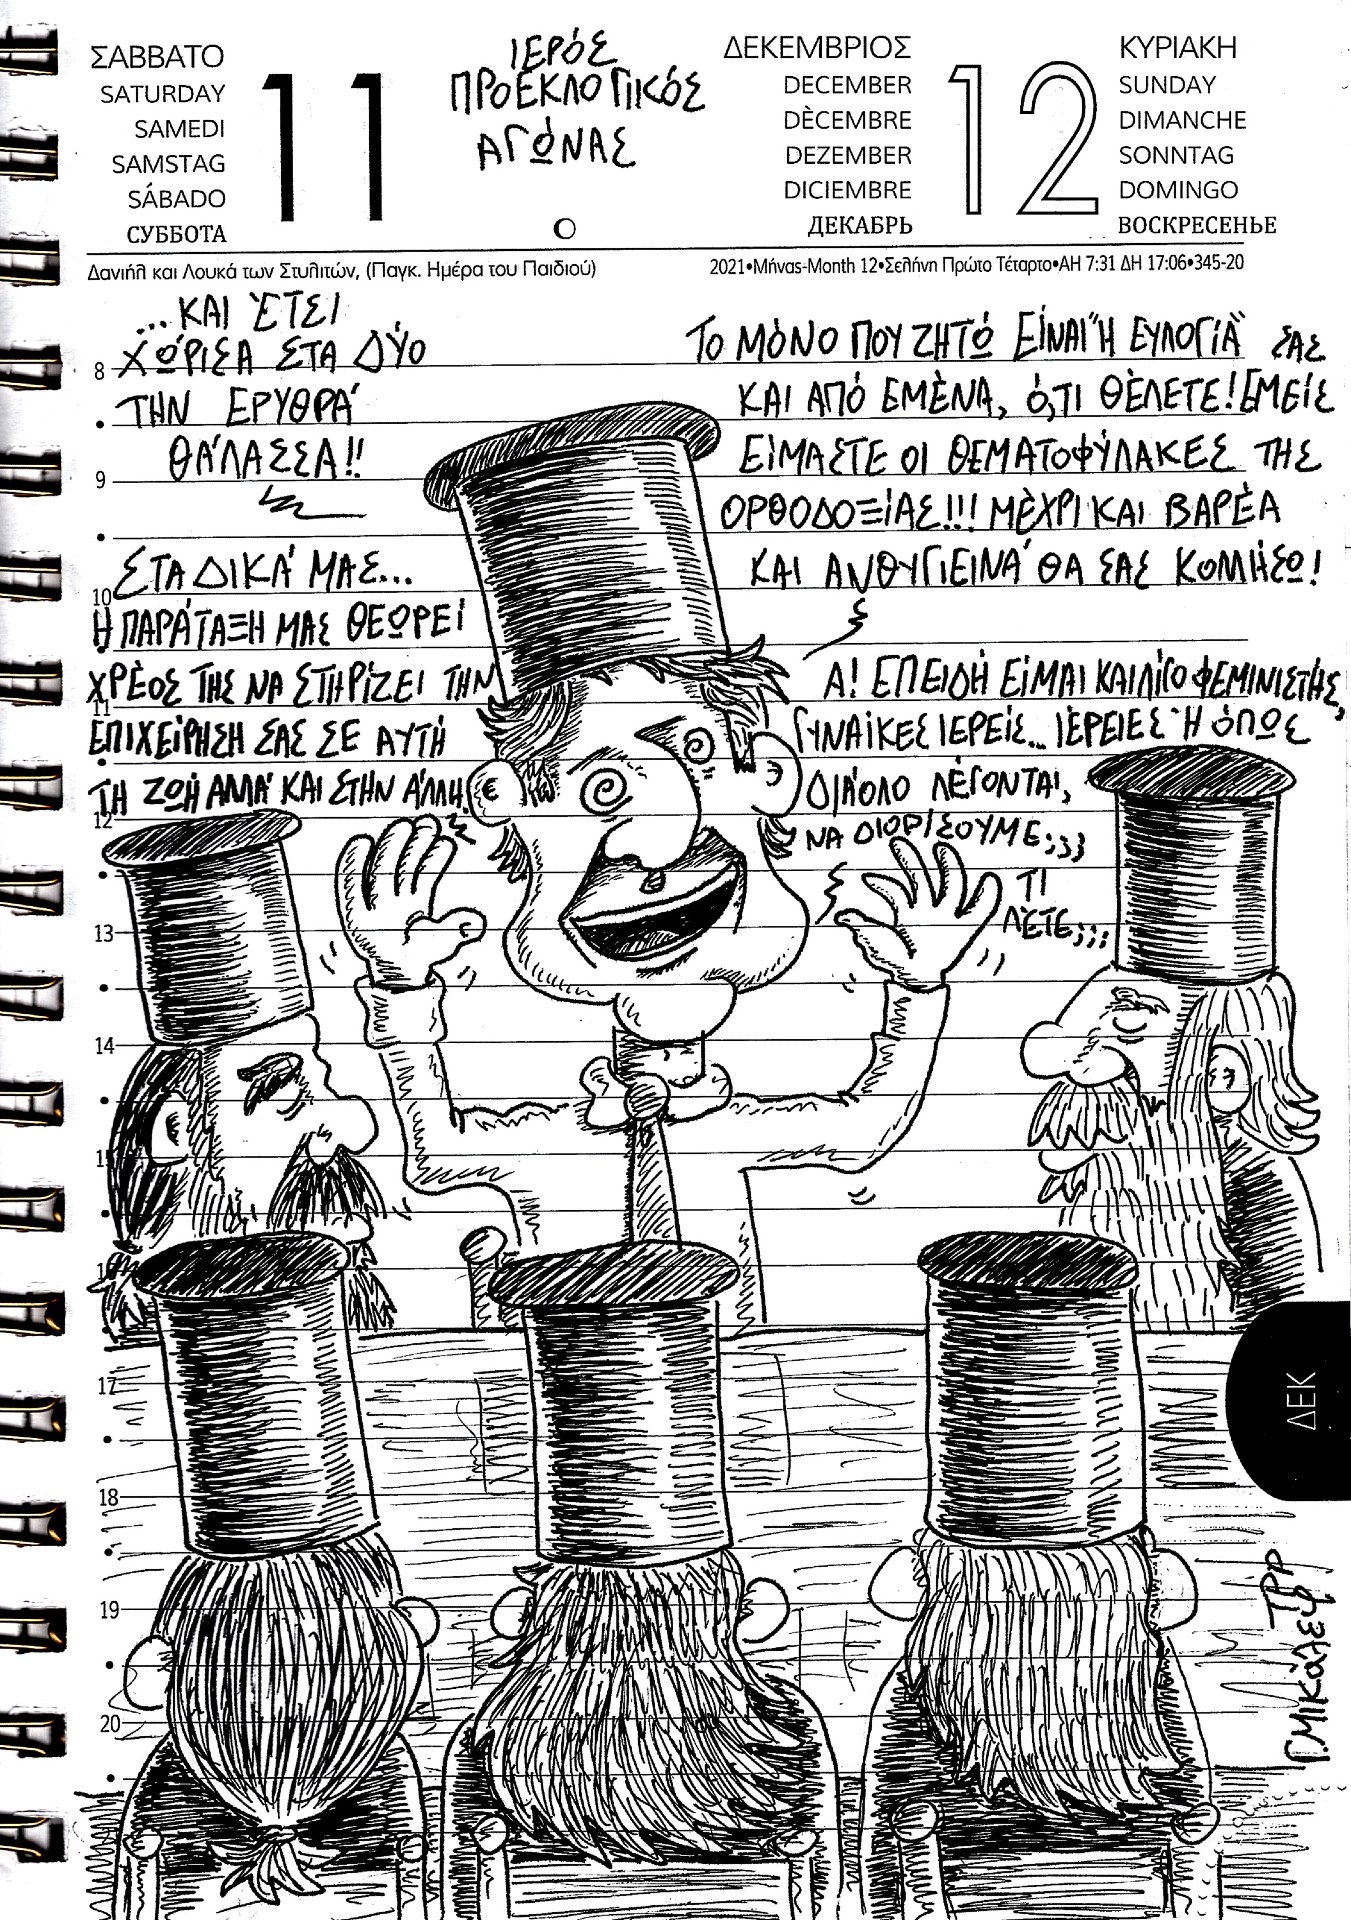 ΣΑΒΒΑΤΟ
SATURDAY
SAMEDI
SAMSTAG
SÁBADO
СУББОТА
11
ΙΕΡΌΣ
ΠΡΟΕΚΛΟΓΙΚΌΣ
ΑΓΏΝΑΣ
ΔΕΚΕΜΒΡΙΟΣ
DECEMBER
DÈCEMBRE
DEZEMBER
DICIEMBRE
ДЕКАБРЬ
12
ΚΥΡΙΑΚΗ
SUNDAY
DIMANCHE
SONNTAG
DOMINGO
ВОСКРЕСЕНЬЕ
Δανιήλ και Λουκά των Στυλιτών, (Παγκ. Ημέρα του Παιδιού)
2021•Μήνας-Month 12•Σελήνη Πρώτο Τέταρτο•ΑΗ 7:31 ΔΗ 17:06•345-20
...ΚΑΙ ΈΤΣΙ
ΧΏΡΙΣΑ ΣΤΑ ΔΎΟ
ΤΗΝ ΕΡΥΘΡΆ
ΘΆΛΑΣΣΑ!!
ΣΤΑ ΔΙΚΆ ΜΑΣ...
Η ΠΑΡΆΤΑΞΗ ΜΑΣ ΘΕΩΡΕΊ
ΧΡΈΟΣ ΤΗΣ ΝΑ ΣΤΗΡΊΖΕΙ ΤΗΝ
ΕΠΙΧΕΊΡΗΣΗ ΣΑΣ ΣΕ ΑΥΤΉ
ΤΗ ΖΩΉ ΑΛΛΆ ΚΑΙ ΣΤΗΝ ΆΛΛΗ.
ΤΟ ΜΌΝΟ ΠΟΥ ΖΗΤΏ ΕΊΝΑΙ "Η ΕΥΛΟΓΊΑ" ΣΑΣ
ΚΑΙ ΑΠΌ ΕΜΈΝΑ, Ό,ΤΙ ΘΈΛΕΤΕ! ΕΜΕΊΣ
ΕΊΜΑΣΤΕ ΟΙ ΘΕΜΑΤΟΦΎΛΑΚΕΣ ΤΗΣ
ΟΡΘΟΔΟΞΊΑΣ!!! ΜΈΧΡΙ ΚΑΙ ΒΑΡΈΑ
ΚΑΙ ΑΝΘΥΓΙΕΙΝΆ ΘΑ ΣΑΣ ΚΟΛΛΉΣΩ!
Α! ΕΠΕΙΔΉ ΕΊΜΑΙ ΚΑΙ ΛΊΓΟ ΦΕΜΙΝΙΣΤΉΣ,
ΓΥΝΑΊΚΕΣ ΙΕΡΕΊΣ... ΙΈΡΕΙΕΣ Ή ΌΠΩΣ
ΔΙΆΟΛΟ ΛΈΓΟΝΤΑΙ,
ΝΑ ΔΙΟΡΊΣΟΥΜΕ;;;
ΤΙ
ΛΈΤΕ;;;
8
9
10
11
12
13
14
15
16
17
18
19
20
ΔΕΚ
Γ.ΜΙΚΆΛΕΦ